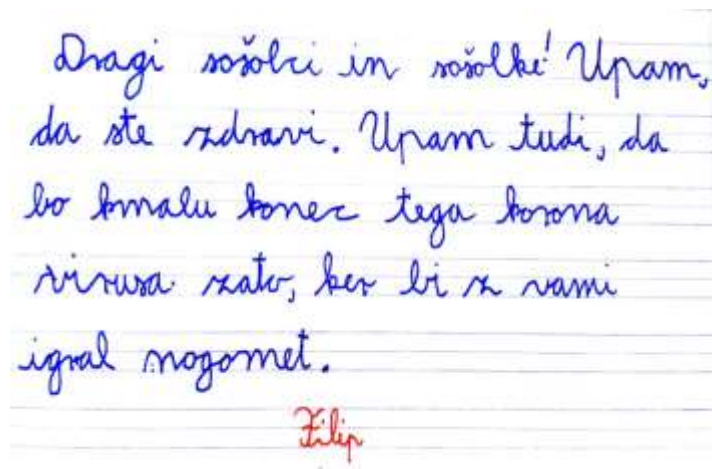 Dragi sošolci in sošolke! Upam,
da ste zdravi. Upam tudi, da
bo kmalu konec tega korona
virusa zato, ker bi z vami
igral nogomet.
Filip